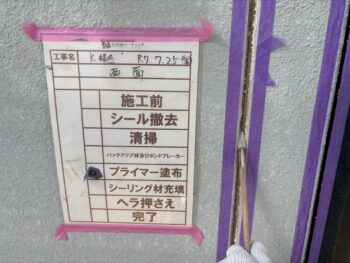 工事名 K様邸 R7.7.25
西面
施工前
シール撤去
清掃
バックアップ材及びボンドブレーカー
プライマー塗布
シーリング材充填
ヘラ押さえ
完了